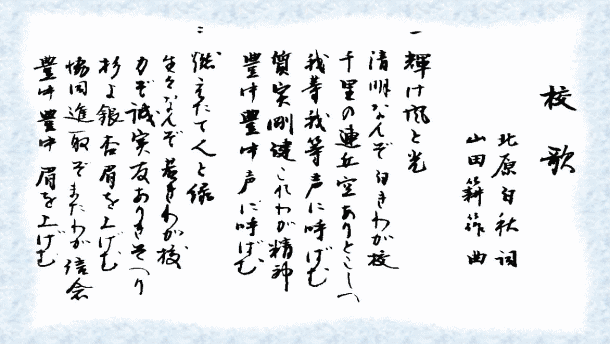 校歌
北原白秋 詞
山田耕筰 曲
一
輝け風と光
清明なんぞ白きわが校
千里の連丘空ありとこしへ
我等我等声に呼ばむ
質実剛健これわが精神
豊中豊中声に呼ばむ
二
燃えたて人と緑
生々なんぞ若きわが校
力ぞ誠実友ありきそへり
杉よ銀杏眉を上げむ
協同進取ぞまたわが信念
豊中豊中眉を上げむ